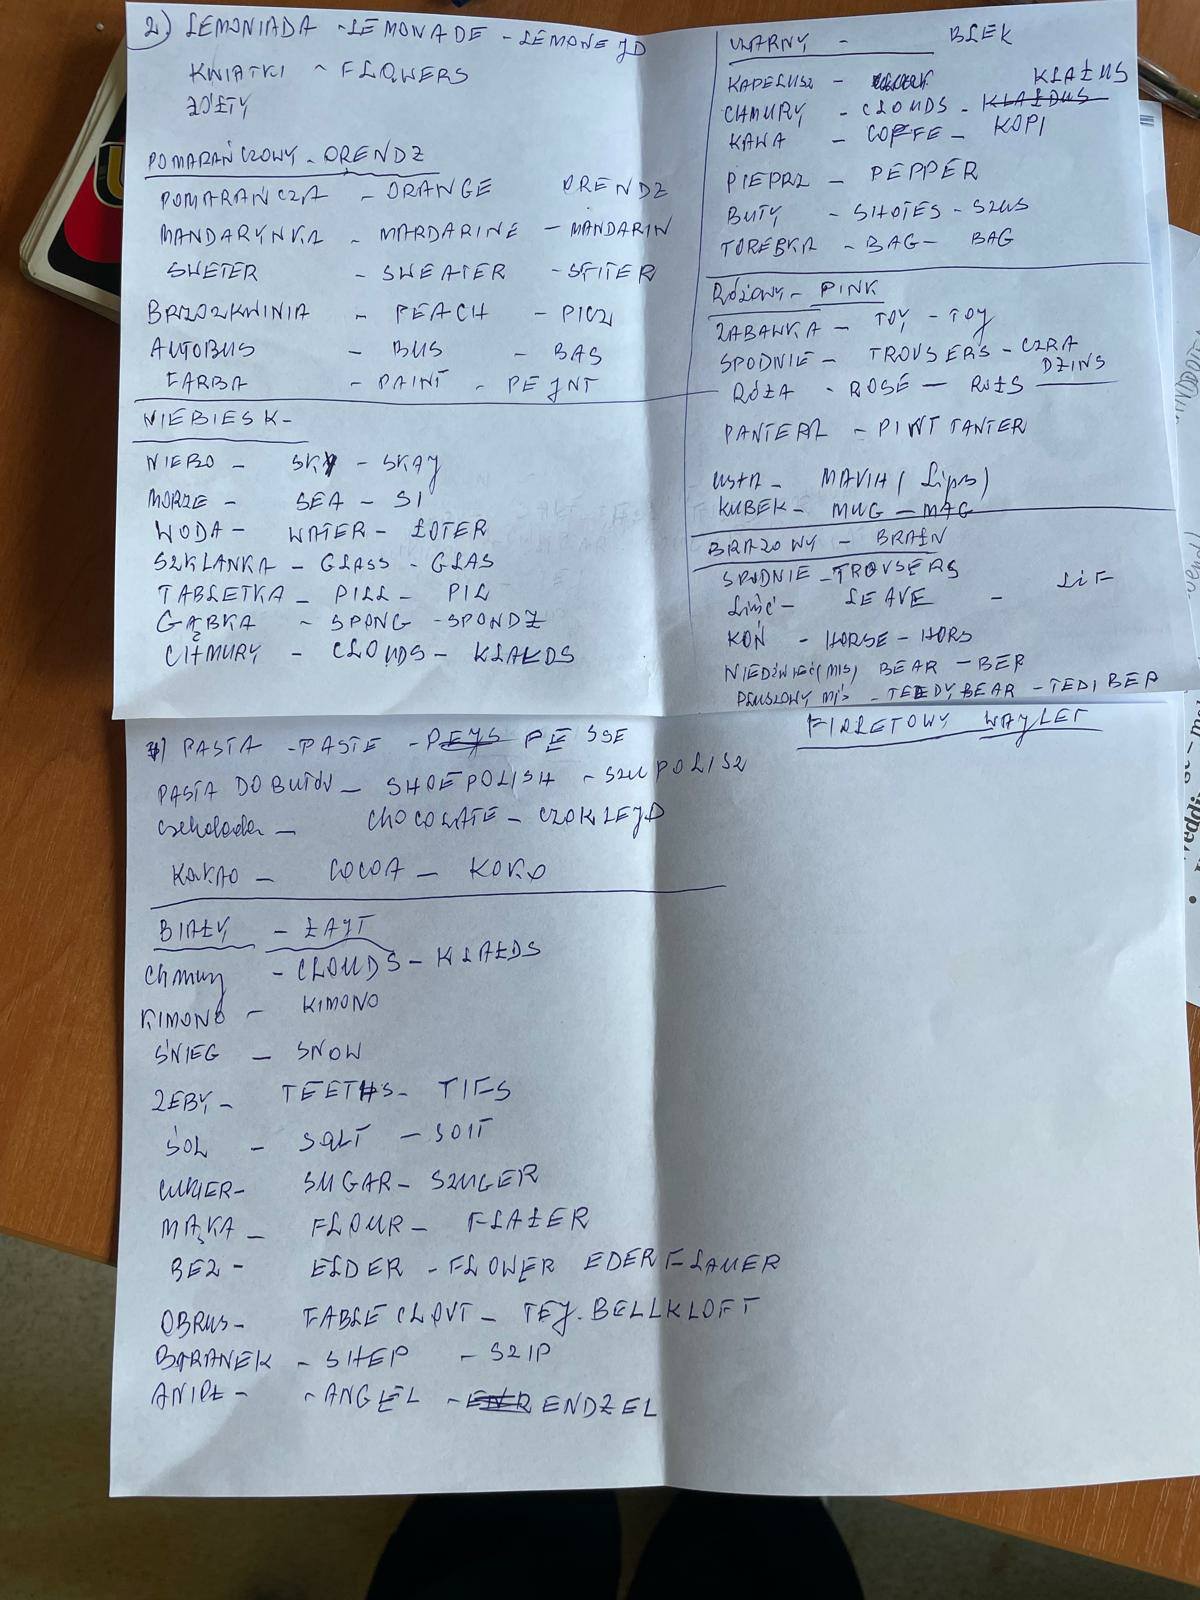 2) LEMONIADA - LEMONADE - LEMONEJD
KWIATKI - FLOWERS
ŻÓŁTY
POMARAŃCZOWY - ORENDZ
POMARAŃCZA - ORANGE ORENDZ
MANDARYNKA - MARDARINE - MANDARIN
SWETER - SWEATER - SFITER
BRZOZKWINIA - PEACH - PICZ
AUTOBUS - BUS - BAS
FARBA - PAINT - PEJNT
NIEBIESK-
NIEBO - SKY - SKAJ
MORZE - SEA - SI
WODA - WATER - ŁOTER
SZKLANKA - GLASS - GLAS
TABLETKA - PILL - PIL
GĄBKA - SPONG - SPONDZ
CHMURY - CLOUDS - KLAKDS
CZARNY - BLEK
KAPELUSZ -
CHMURY - CLOUDS - KLAŁDUS KLAŁUS
KAWA - COFFE - KOPI
PIEPRZ - PEPPER
BUTY - SHOTES - SZUS
TOREBKA - BAG - BAG
RÓŻOWY - PINK
ZABAWKA - TOY - TOJ
SPODNIE - TROUSERS - CZRA DŻINS
RÓŻA - ROSE - ROŁS
PANTERA - PINT TANTER
USTA - MAVIH (Lips)
KUBEK - MUG - MAG
BRAZOWY - BRAŁN
SPODNIE - TROUSERS
Liść - LEAVE - LIF
KOŃ - HORSE - HORS
NIEDŹWIEĆ (MIS) BEAR - BER
PLUSZOWY MIŚ - TEDDY BEAR - TEDI BEA
FIOLETOWY WAYLET
3) PASTA - PASTE - PEJS PE SSE
PASTA DO BUTÓW - SHOE POLISH - SZU POLISZ
Czekolada - CHOCOLATE - CZOKLEJD
KAKAO - COCOA - KOKO
BIAŁY - ŁAJT
Chmury - CLOUDS - KLAŁDS
KIMONO - KIMONO
ŚNIEG - SNOW
ZEBY - TEETHS - TIFS
SÓL - SALT - SOIT
CUKIER - SUGAR - SZUGER
MĄKA - FLOUR - FLAŁER
BEZ - ELDER - FLOWER EDERFLAUER
OBRUS - TABLE CLOVT - TEJ. BELLKLOFT
BARANEK - SHEP - SZIP
ANIOŁ - ANGEL - ENDŻEL